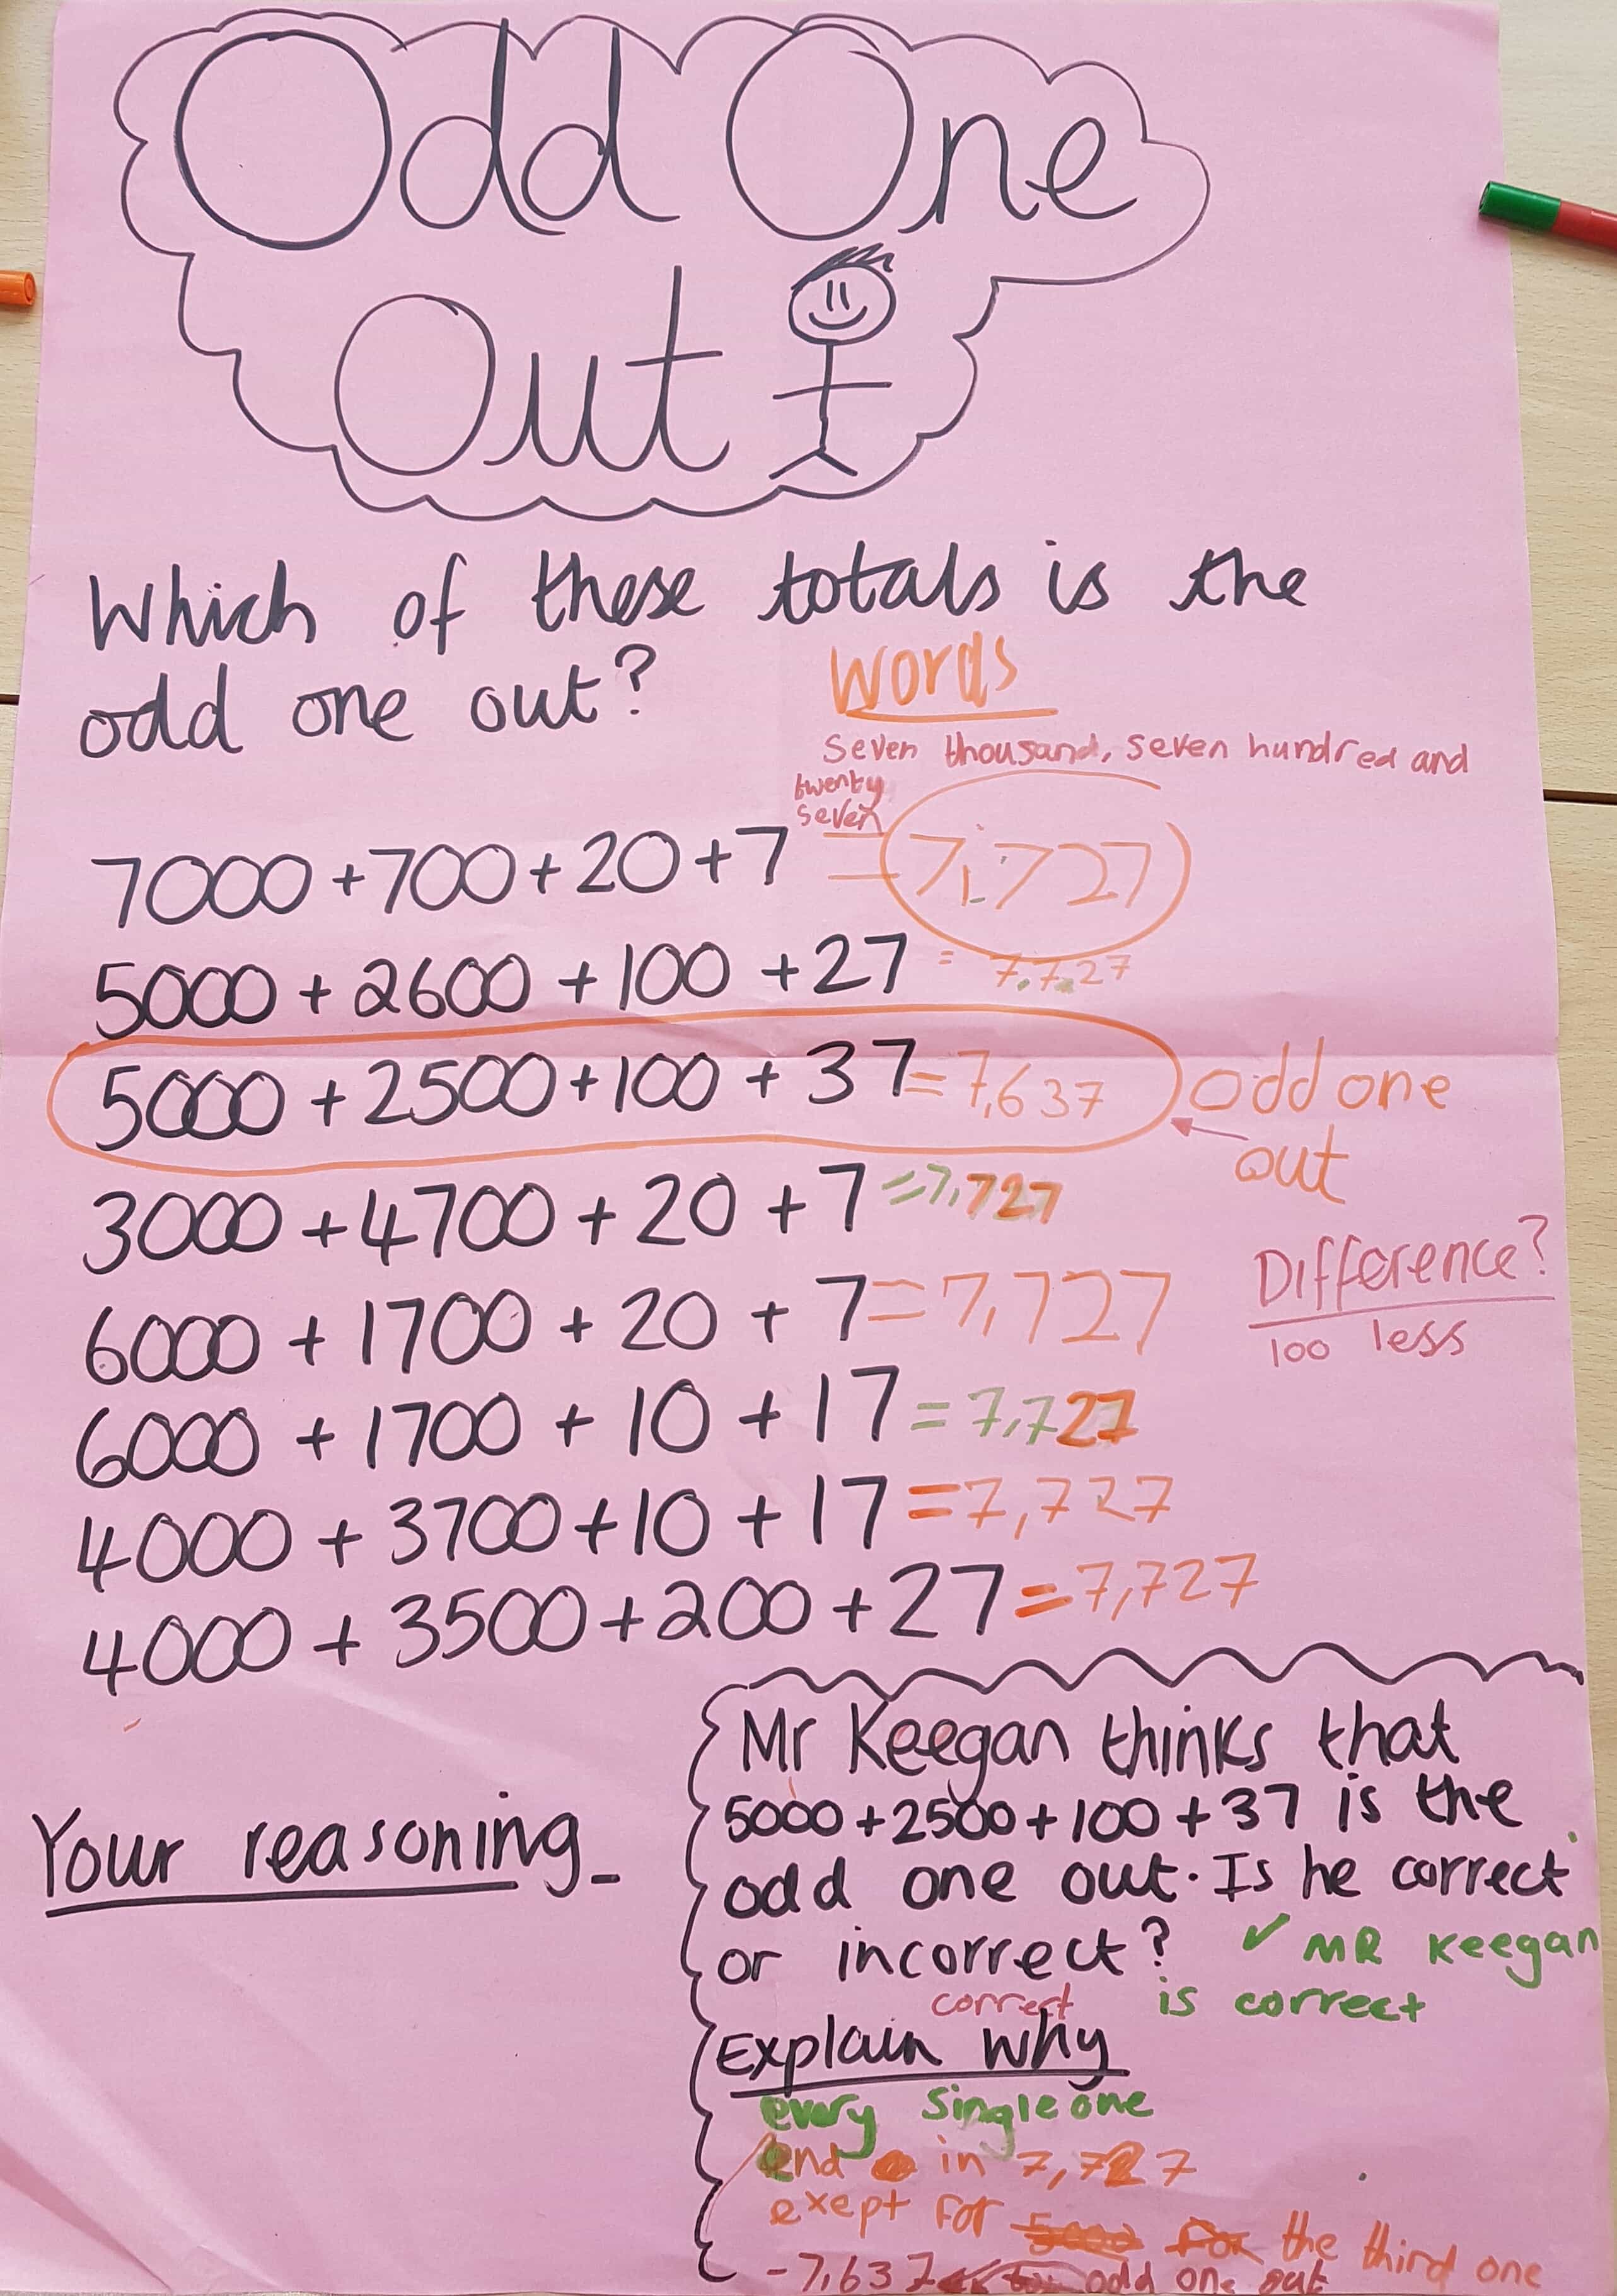 Odd One
Out
Which of these totals is the
odd one out?
Words
Seven thousand, seven hundred and
twenty
seven
7000 + 700 + 20 + 7 = 7,727
5000 + 2600 + 100 + 27 = 7,727
5000 + 2500 + 100 + 37 = 7,637
odd one
out
3000 + 4700 + 20 + 7 = 7,727
Difference?
100 less
6000 + 1700 + 20 + 7 = 7,727
6000 + 1700 + 10 + 17 = 7,727
4000 + 3700 + 10 + 17 = 7,727
4000 + 3500 + 200 + 27 = 7,727
Your reasoning-
Mr Keegan thinks that
5000 + 2500 + 100 + 37 is the
odd one out. Is he correct
or incorrect? ✓ MR Keegan
correct is correct
Explain why
every single one
end in 7,727
exept for the third one
- 7,637 odd one out